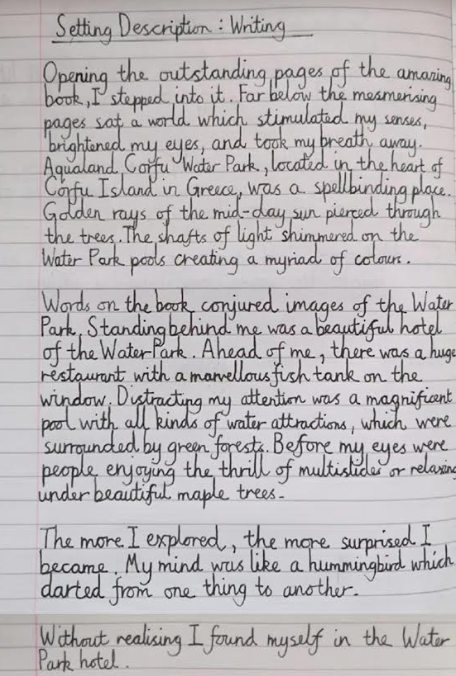 Setting Description: Writing
Opening the outstanding pages of the amazing
book, I stepped into it. Far below the mesmerising
pages sat a world which stimulated my senses,
brightened my eyes, and took my breath away.
Aqualand Corfu Water Park, located in the heart of
Corfu Island in Greece, was a spellbinding place.
Golden rays of the mid-day sun pierced through
the trees. The shafts of light shimmered on the
Water Park pools creating a myriad of colours.
Words on the book conjured images of the Water
Park. Standing behind me was a beautiful hotel
of the Water Park. Ahead of me, there was a huge
restaurant with a marvellous fish tank on the
window. Distracting my attention was a magnificent
pool with all kinds of water attractions, which were
surrounded by green forests. Before my eyes were
people enjoying the thrill of multislides or relaxing
under beautiful maple trees.
The more I explored, the more surprised I
became. My mind was like a hummingbird which
darted from one thing to another.
Without realising I found myself in the Water
Park hotel.